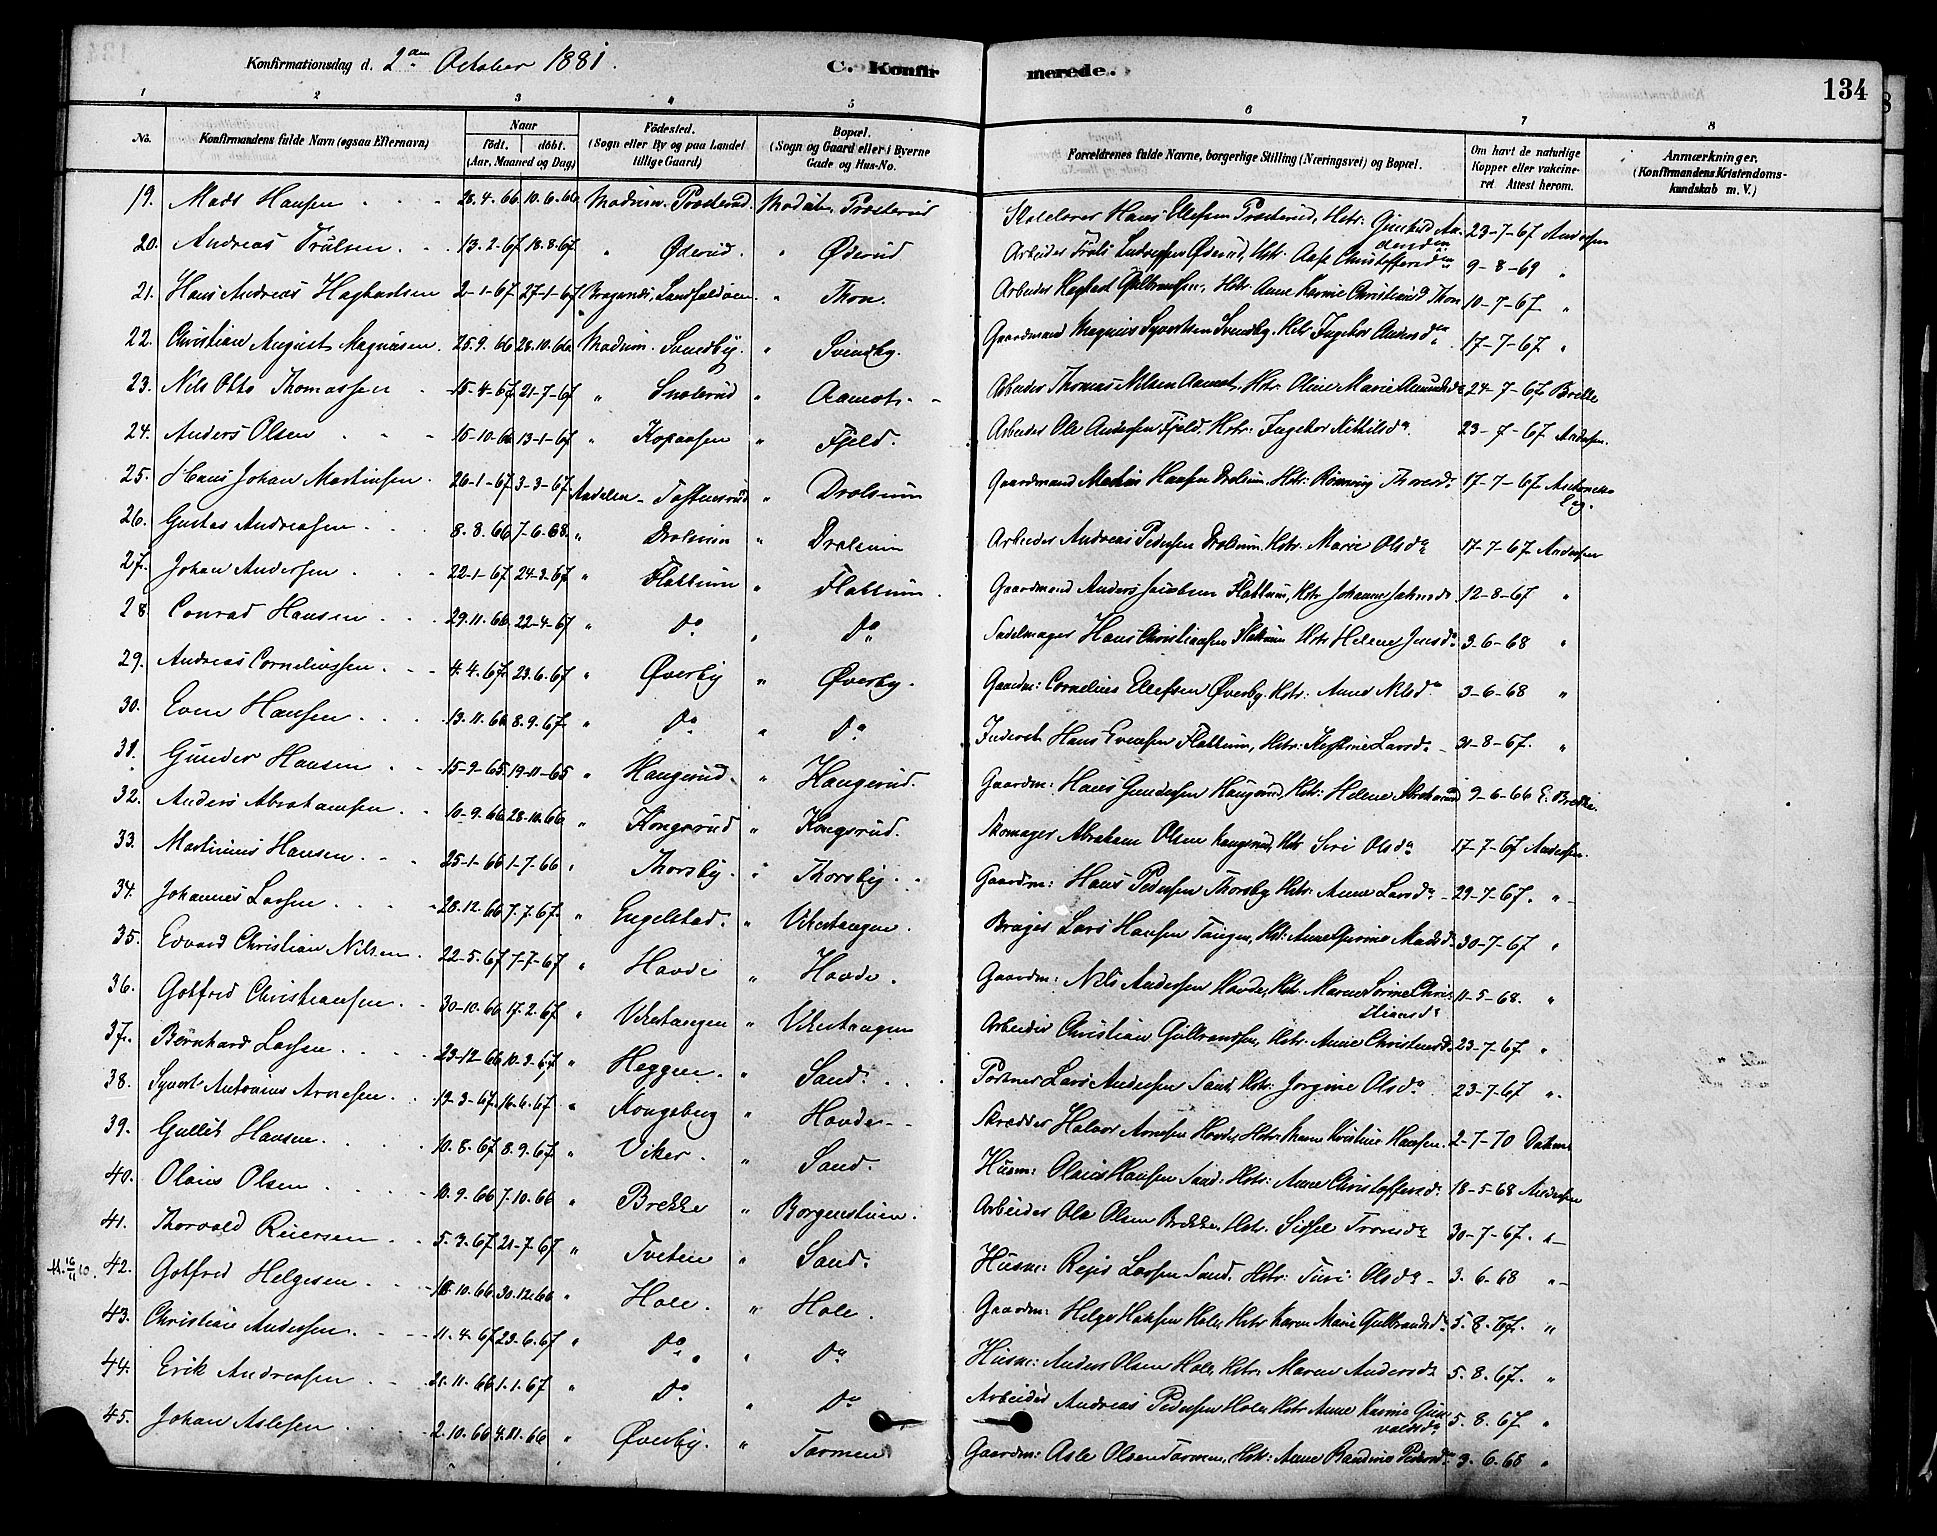 Konfirmationsdag d. 2den October 1881.
C. Konfirmerede.
134
1 2 3 4 5 6 7 8
No. Konfirmandens fulde Navn (ogsaa Efternavn) Naar födt. döbt. (Aar, Maaned og Dag) Födested. (Sogn eller By og paa Landet tillige Gaard) Bopæl. (Sogn og Gaard eller i Byerne Gade og Hus-No. Forældrenes fulde Navne, borgerlige Stilling (Næringsvei) og Bopæl. Om havt de naturlige Kopper eller vakcineret. Attest herom. Anmærkninger. (Konfirmandens Kristendomskundskab m. V.)
19. Mads Hansen 28-4-66 10-6-66 Modum. Præsterud Modum, Præsterud Hans Olefsen Præsterud, Hstr: Gunhild 23-7-67 Andersen
20. Andreas Trulsen 13-2-67 18-8-67 " Øderud. " Øderud Arbeider Truls Andersen Øderud, Hstr. Aase Christoffersdn 9-8-69 "
21. Hans Andreas Hagbartsen 2-1-67 27-1-67 Bragernes, Landfaldøen. " Thon Arbeider Hagbart Gulbransen, Hstr. Anne Karine Christiansd Thon 10-7-67 "
22. Christian August Magnusen. 25.9.66 28.10.66 Modum. Svendby. " Svendby. Gaardmand Magnus Syvertsen Svendby. Hstr Ingebor Andersdn 17-7-67 "
23. Nils Otto Thomassen 15-4-67 21-7-67 " Snelerud " Aamot. Arbeider Thomas Nilsen Aamot, Hstr: Oline Marie Amundsdn 24-7-67 Brekke
24. Anders Olsen 15-10-66 13-1-67 " Kopaasen " Fjeld. Arbeider Ole Andersen Fjeld. Hstr: Ingebor Nikkilsdn. 23-7-67 Andersen.
25. Hans Johan Martinsen. 26-1-67 3-3-67 Aadalen. " Drolsum Gaardmand Martin Hansen Drolsum. Hstr: Rønnoug 17-7-67
26. Gustav Andreasen 8.8.66 7-6-68. " Drolsum " Drolsum Arbeider Andreas Pedersen Drolsum, Hstr: Marie Olsdn 17-7-67 Andersen
27. Johan Andersen 22-1-67 24-3-67 " Flattum " Flattum. Gaardmand Anders Jacobsen Flattum, Hstr Johanne 12-8-67 "
28 Conrad Hansen 29.11.66 22-4-67 " Do " Do Sadelmager Hans Christiansen Flattum Hstr Helene Jensdn 3-6-68 "
29. Andreas Corneliussen. 4.4.67 23.6.67 " Øverby " Øverby. Gaardm: Cornelius Ellefsen Øverby. Hstr: Anne Nilsdn 3-6-68 "
30. Even Hansen 13.11.66 8.9.67 " Do " Do Inderst. Hans Evensen Flattum, Hstr: Kjerstine Larsdn 31-8-67. "
31. Gunder Hansen 15-9-65 19-11-65 " Haugerud. " Haugerud. Gaardm: Hans Gundersen Haugerud, Hstr: Helene 9-6-66 E. Brekke.
32. Anders Abrahamsen. 10-9.66 28-10.66 " Kongsrud " Kongsrud. Skomager Abraham Olsen Kongsrud, Hstr Siri Olsdn 17-7-67 Andersen.
33. Martinius Hansen 25-1-66 1-7-66 " Thorsby. " Thorsby. Gaardm: Hans Pedersen Thorsby Hstr: Anne Larsdn 29-7-67. "
34. Johannes Larsen 28.12.66 7.7.67. " Engelstad. " Vikertangen. Lars Hansen Tangen, Hst: Anne Gurine Madsd. 30-7-67 "
35. Edvard Christian Nilsen 22-5-67 7-7-67 " Hovde " Hovde. Gaardm: Nils Andersen Hovde, Hst. Maren Lorine Christiansdn 11-5-68. "
36. Gotfred Christiansen. 30-10.66 17.2.67 " Vikertangen " Vikertangen Arbeider Christian Gulbrandsen, Hstr: Anne Christensd. 23-7-67 "
37. Bernhard Larsen 23-12-66 10.3.67 " Heggen. " Sand. Lars Andersen Sand, Hstr: Jørgine Olsdn 23-7-67 "
38. Syvert Antonius Arnesen. 19-3-67. 16.6.67. " Kongsberg " Hovde Skræddder Halvor Arnesen Hovde, Hstr: Karen Kristine Hansen. 2-7-70
39. Gullik Hansen. 10.8.67 8.9.67. " Viker. " Sand. Husm: Olaus Hansen Sand. Hstr: Anne Christoffersdn. 18-5-68 Andersen
40. Olaus Olsen 10.9.66 7.10.66 " Brekke " Borgerstuen. Arbeider Ole Olsen Brekke, Hstr. Sissel Tronsdn 30-7-67. "
41. Thorvald Reiersen 5.3.67 21-7.67 " Tveten " Sand. Husm: Lassen Sand. Hstr: Turi Olsdn 3.6.68 "
42. Gotfred Helgesen 10.66. 30.12.66 " Hole. " Hole. Gaardm: Helge Hansen Hole, Hstr Karen Marie Gulbrandsdn 5.8.67. "
43. Christian Andersen. 11.4.67 23.6.67 " Do " Do Husm: Anders Olsen Hole, Hstr: Maren Andersdn 5.8.67. "
44. Erik Andreasen 21.11.66 1.1.67 " Do " Do Arbeider Andreas Pedersen Hole, Hstr Anne Karine Gunvaldsdn 5.8.67 "
45. Johan Aslesen 2.10.66 4.11.66 " Øverby. " Tormen. Gaardm: Asle Olsen Tormen, Hstr: Anne Randine Pedersdn 3.6.68 "